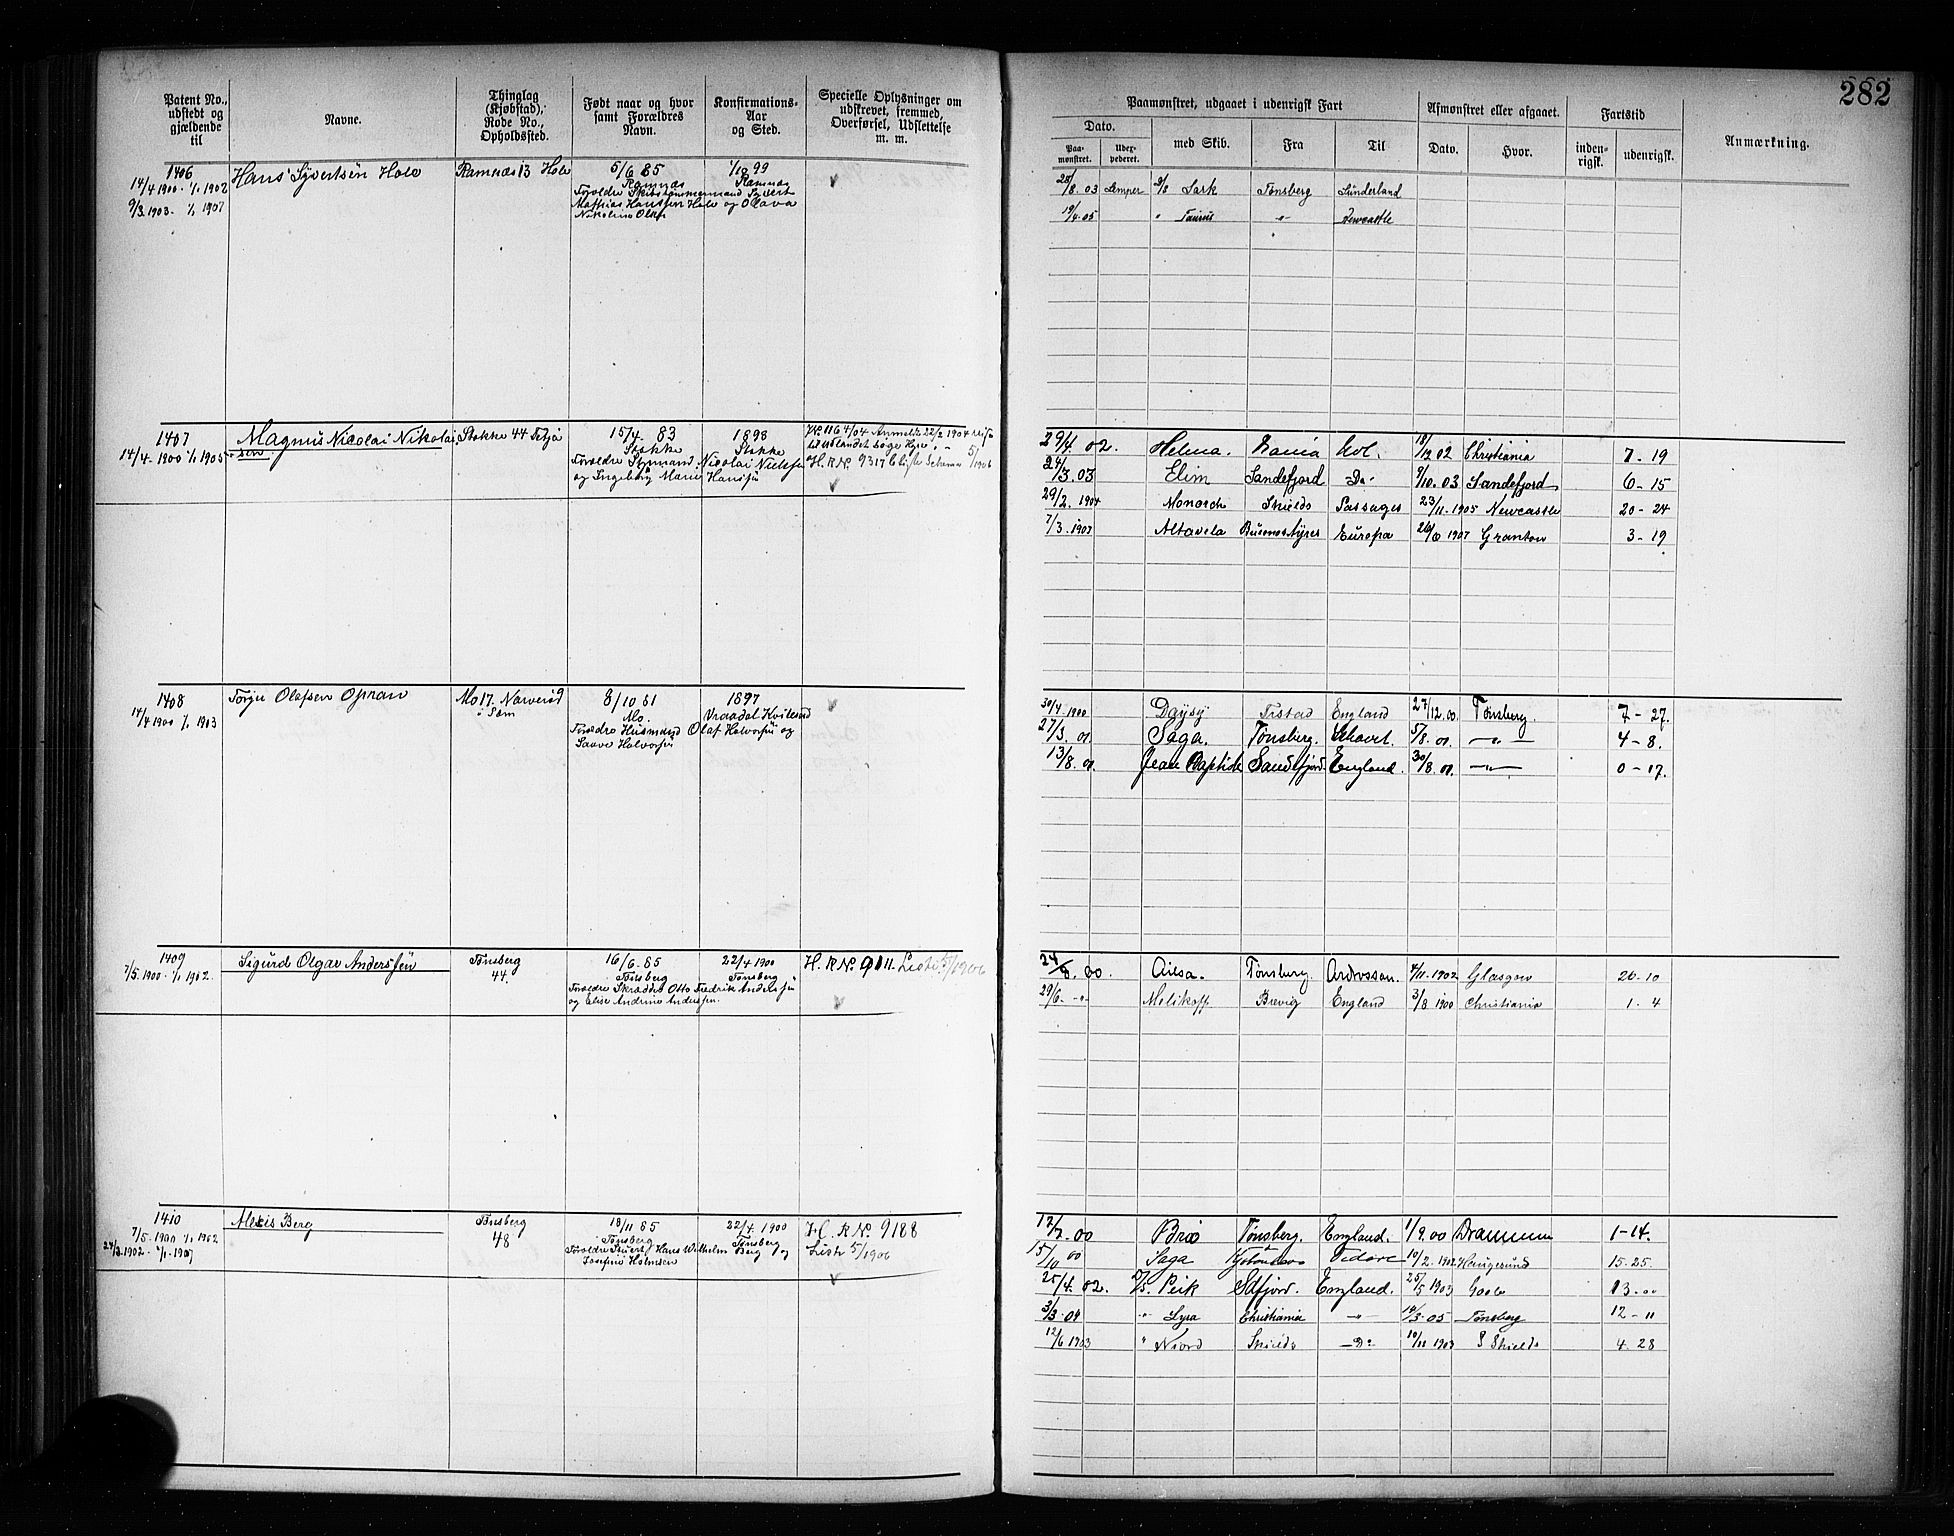 282
Patent No., udstedt og gjældende til
Navne.
Thinglag (Kjøbstad), Rode No., Opholdssted.
Født naar og hvor samt Forældres Navn.
Konfirmations-Aar og Sted.
Specielle Oplysninger om udskrevet, fremmed, Overførsel, Udslettelse m. m.
Paamønstret, udgaaet i udenrigsk Fart
Afmønstret eller afgaaet.
Fartstid
Anmærkning.
Dato.
med Skib.
Fra
Til
Dato.
Hvor.
inden-rigsk.
udenrigsk.
Paa-mønstret.
1406
14/4 1900 - 1/1 1902
9/3 1903 - 1/1 1907
Hans Syvertsen Hole
Ramnæs 13 Hole
5/6 85
Ramnæs
Forældre Skibstømmermand Syvert
Mathias Hansen Hole og Olava
Nikoline Olsen
1/10 99
Ramnæs
28/8 03 9/8 Sark Tønsberg Sunderland
19/4 05 " Taurus -"- Newcastle
1407
14/4 1900 1/1 1905
Magnus Nicolai Nikolai
sen
Stokke 44
15/4 83
Stokke
Forældre Styrmand Nicolai Nielsen
og Ingeborg Marie Hansen
1898
Stokke
J.No. 1164/04 Anmeldt 22/2 1904
til Udlandet søge Hyre
H. R No. 9317 5/1906
29/4 02. Helena. Hol. 18/12 02 Christiania 7 - 19
24/3 03 Elim Sandefjord Do- 9/10 03 Sandefjord 6 - 15
29/2 1904 Monarch Shields Passages 23/11 1905 Newcastle 20 - 24
7/3 1907 Altavela Buenos Ayres Europa 26/6 1907 Granton 3 - 19
1408
14/4 1900 1/1 1903
Torju Olafsen Opran
Mo 17. Narverød
i Sem
8/10 81
Mo.
Forældre Husmand Olaf Halvorsen og
Saave Halvorsen
1897
Vraadal Kviteseid
30/4 1900 Daysy England 27/12 00. Tønsberg. 7 - 27.
27/3 01 Saga. Tønsberg. 5/8 01. -"- 4 - 8.
13/8 01. Jean Baptiste Sandefjord England. 30/8 01. -"- 0 - 17.
1409
7/5 1900 - 1/1 1902.
Sigurd Olgar Anderssen
Tønsberg
44.
16/6 85
Tønsberg
Forældre Skrædder Otto Fredrik Anderssen
og Elise Andrine Anderssen.
22/4 1900
Tønsberg
H. R No. 9111. Liste 5/1906
24/8 00 Ailsa. Tønsberg. Ardrossan. 4/11 1902 Glasgow 26 - 10
29/6 -"- Melikoff Brevig England 3/8 1900 Christiania 1 - 4
1410
7/5 1900 1/1 1902
24/2 1902 - 1/1 1907
Alexis Berg
Tønsberg
48
18/11 85
Tønsberg
Forældre Stuert Hans Wilhelm Berg og
Josefine Holmsen
22/4 1900
Tønsberg
H. R No. 9188
Liste 5/1906
12/7 00 Brio Tønsberg. England. 1/9 00 Drammen 1 - 14.
15/10 00 Saga 10/2 1902 Haugesund 15. 25.
25/4 02. Peik Sdfjord. England. 25/5 1903 Goole 13
3/3 04 " Lyra Christiania -"- 14/3 05 Tønsberg 12 - 11
12/6 1903 " Niord Shields -Do- 10/11 1903 S Shields 4. 28